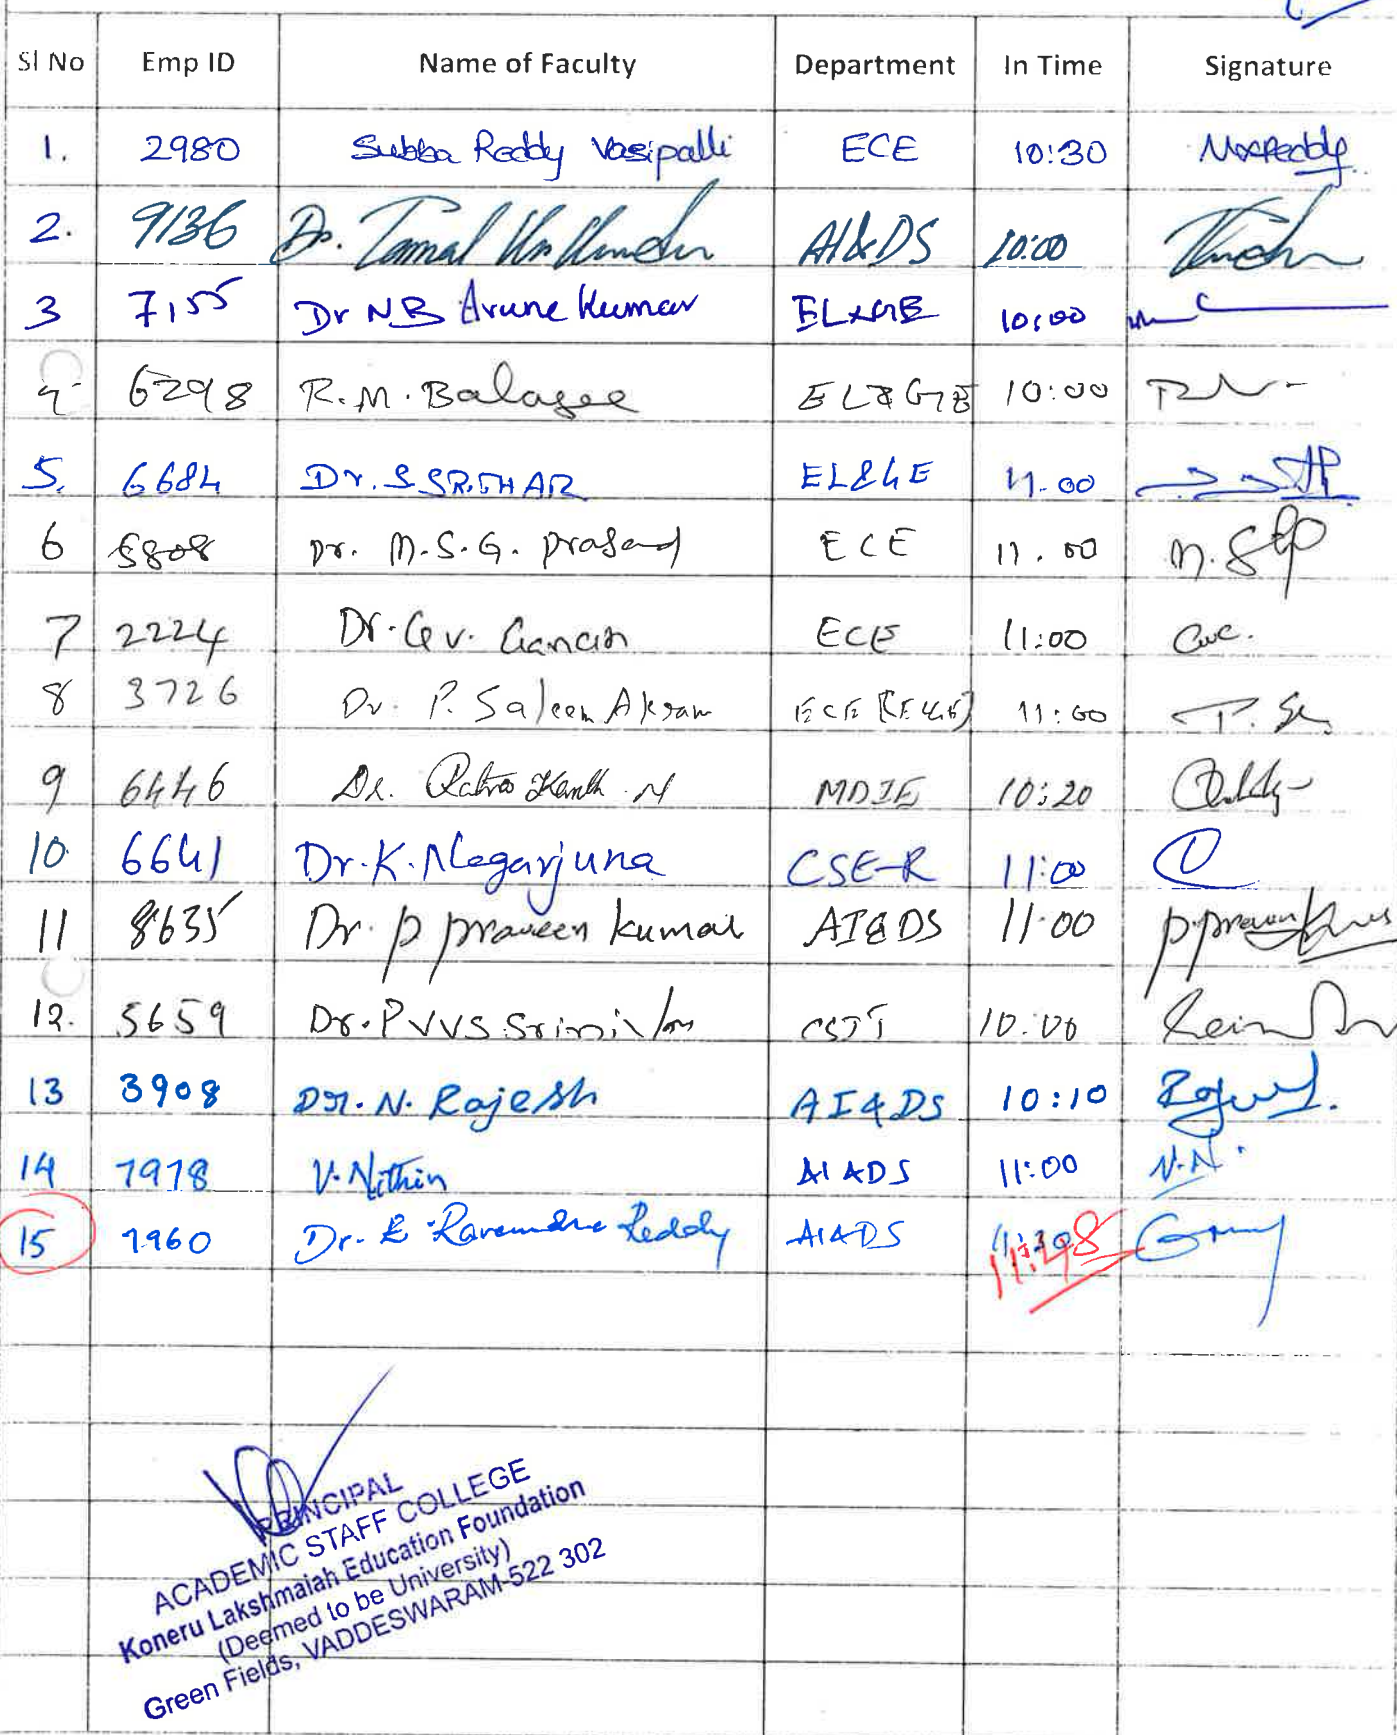 Sl No Emp ID Name of Faculty Department In Time Signature
1. 2980 Subba Reddy Vasipalli ECE 10:30
2. 9136 Dr. Tamal Kr Kundu AI&DS 10:00
3 7155 Dr NB Arune Kumar EL&GE 10:00
4 6298 R.M. Balajee EL&GE 10:00
5. 6684 Dr. S SRITHAR EL&GE 11.00
6 5808 Dr. M.S.G. Prasad ECE 11.00
7 2224 Dr. ECE 11:00
8 3726 Dr. P. Saleem Akram ECE 11:00 P. S
9 6446 Dr. Ratna Kanth .N 10:20
10 6641 Dr. K. Nagarjuna CSE-R 11:00
11 8635 Dr. p praveen kumar AI&DS 11.00 p.praveen
12. 5659 Dr. PVVS Srinivas CSIT 10:00
13 3908 Dr. N. Rajesh AI&DS 10:10
14 7978 V. Nithin AI&DS 11:00 V.N.
15 7960 Dr. E Raveendra Reddy AI&DS 11:48
PRINCIPAL
ACADEMIC STAFF COLLEGE
Koneru Lakshmaiah Education Foundation
(Deemed to be University)
Green Fields, VADDESWARAM-522 302